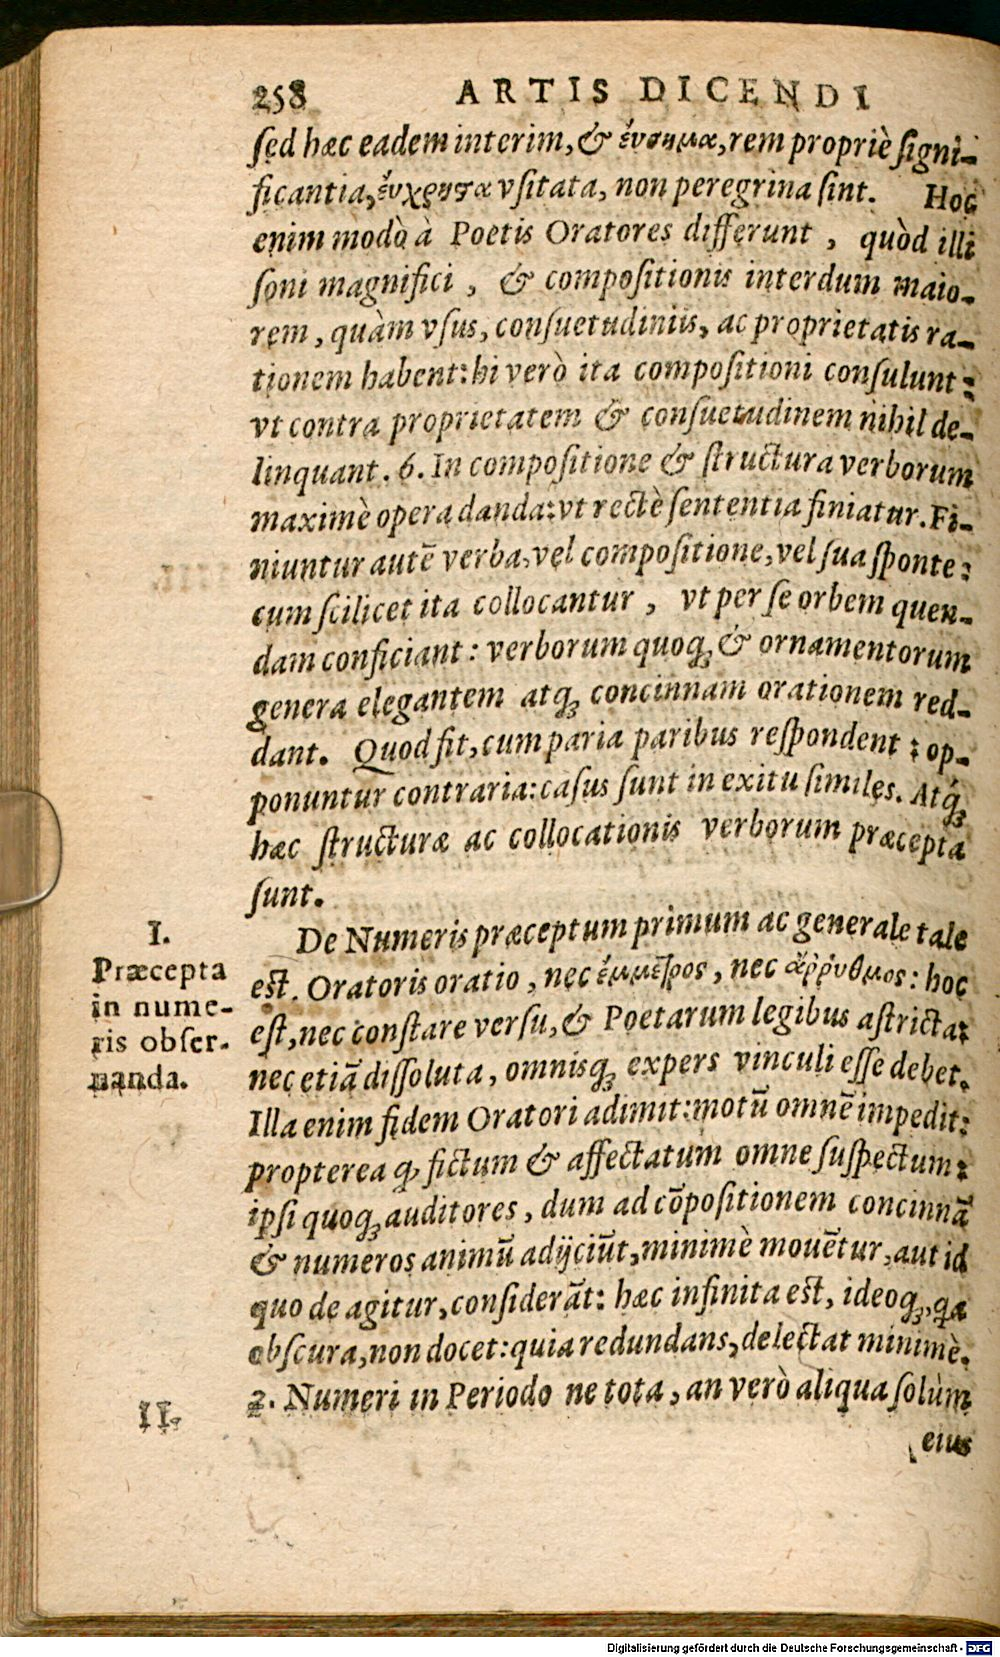 258 ARTIS DICENDI
ſed hæc eadem interim, & ἔυσημα, rem propriè ſigni-
ficantia, ἔυχρηστα vſitata, non peregrina ſint. Hoc
enim modò à Poetis Oratores differunt, quòd illi
ſoni magnifici, & compoſitionis interdum maio-
rem, quàm vſus, conſuetudiniis, ac proprietatis ra-
tionem habent: hi verò ita compoſitioni conſulunt:
vt contra proprietatem & conſuetudinem nihil de-
linquant. 6. In compoſitione & ſtructura verborum
maximè opera danda: vt rectè ſententia finiatur. Fi-
niuntur autē verba, vel compoſitione, vel ſua ſponte:
cum ſcilicet ita collocantur, vt per ſe orbem quen-
dam conficiant: verborum quoq; & ornamentorum
genera elegantem atq; concinnam orationem red-
dant. Quod fit, cum paria paribus reſpondent: op-
ponuntur contraria: caſus ſunt in exitu ſimiles. Atq́;
hæc ſtructuræ ac collocationis verborum præcepta
ſunt.
I.
Præcepta
in nume-
ris obſer-
uanda.
De Numeris præceptum primum ac generale tale
eſt. Oratoris oratio, nec ἔμμετρος, nec ἄῤῥυθμος: hoc
eſt, nec conſtare verſu, & Poetarum legibus aſtricta:
nec etiā diſſoluta, omnisq; expers vinculi eſſe debet.
Illa enim fidem Oratori adimit: motū omnē impedit:
propterea ꝙ fictum & affectatum omne ſuſpectum:
ipſi quoq; auditores, dum ad cōpoſitionem concinnā
& numeros animū adijciūt, minimè mouētur, aut id
quo de agitur, conſiderāt: hæc infinita eſt, ideoq;, qa
obſcura, non docet: quia redundans, delectat minimè.
II.
2. Numeri in Periodo ne tota, an verò aliqua ſolùm
eius
Digitalisierung gefördert durch die Deutsche Forschungsgemeinschaft - DFG